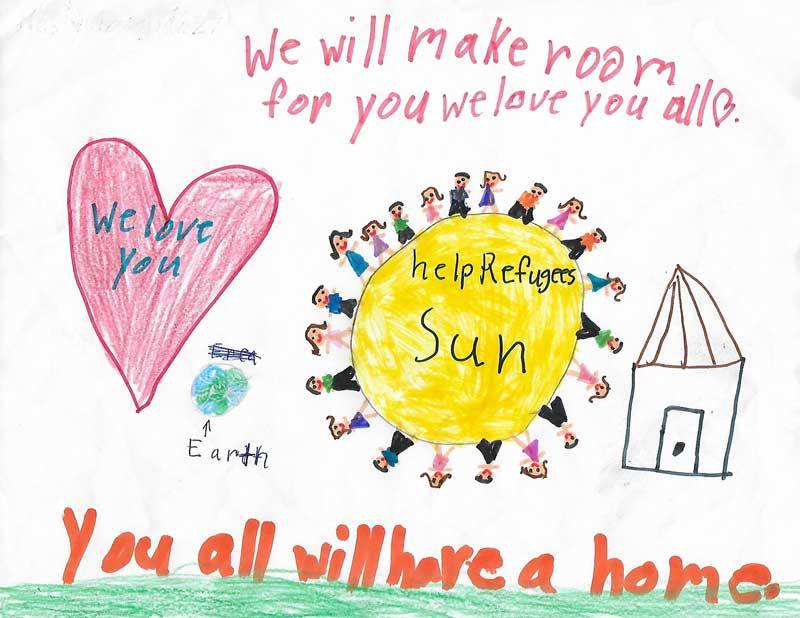 We will make room
for you we love you all♡.
We love
you
help Refugees
Sun
Earth
You all will have a home.